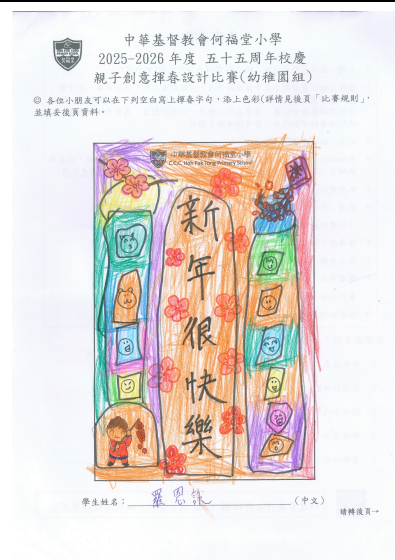 中華基督教會何福堂小學
2025-2026 年度 五十五周年校慶
親子創意揮春設計比賽(幼稚園組)
◎ 各位小朋友可以在下列空白寫上揮春字句，添上色彩(詳情見後頁「比賽規則」，
並填妥後頁資料。
中華基督教會何福堂小學
C.C.C. Hoh Fuk Tong Primary School
新年很快樂
學生姓名： 羅恩 （中文）
請轉後頁→